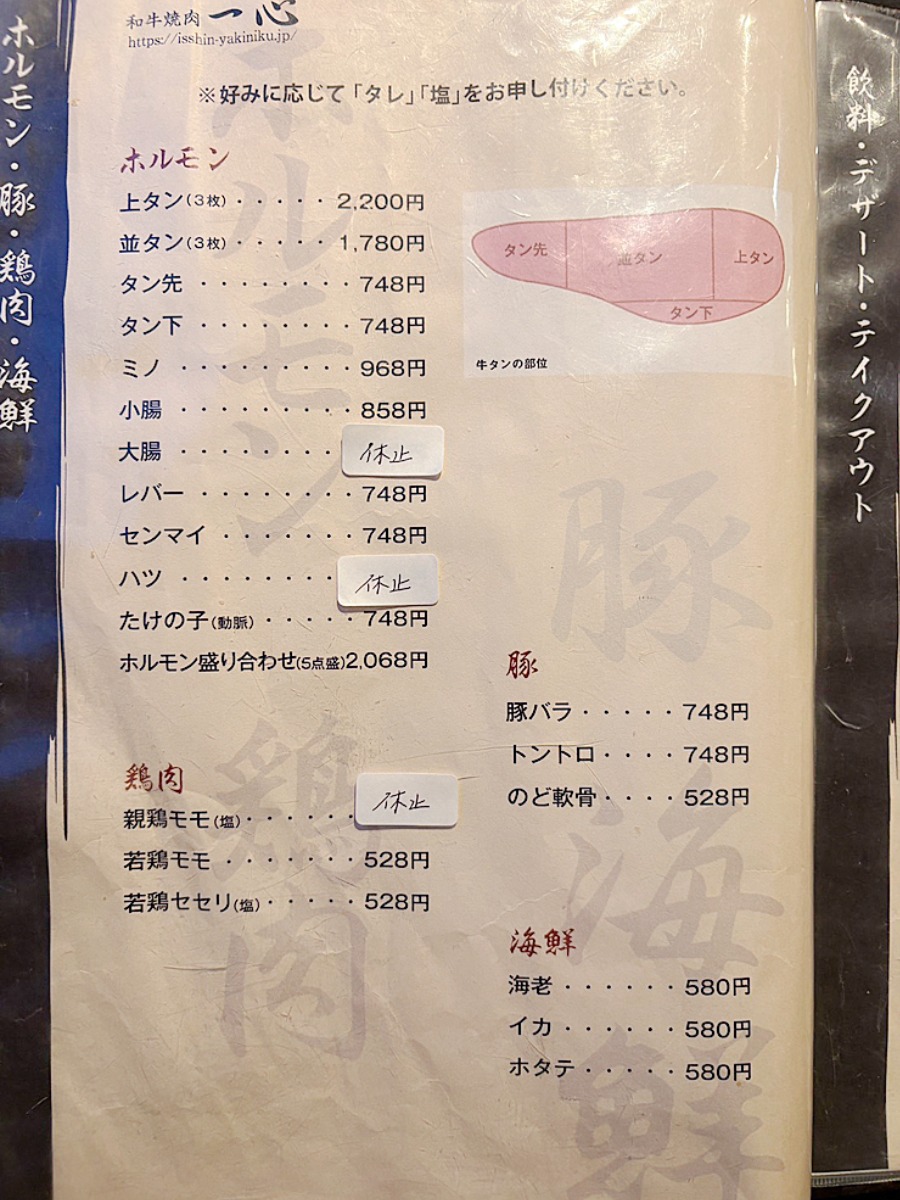 ホルモン・豚・鶏肉・海鮮
和牛焼肉 一心
https://isshin-yakiniku.jp/
※好みに応じて「タレ」「塩」をお申し付けください。
ホルモン
上タン(3枚)・・・・・2,200円
並タン(3枚)・・・・・1,780円
タン先・・・・・・・・748円
タン下・・・・・・・・748円
ミノ・・・・・・・・・968円
小腸・・・・・・・・・858円
大腸・・・・・・・・休止
レバー・・・・・・・・748円
センマイ・・・・・・・748円
ハツ・・・・・・・・休止
たけの子(動脈)・・・・・748円
ホルモン盛り合わせ(5点盛)2,068円
タン先
並タン
上タン
タン下
牛タンの部位
鶏肉
親鶏モモ(塩)・・・・・・休止
若鶏モモ・・・・・・・528円
若鶏セセリ(塩)・・・・・528円
豚
豚バラ・・・・・748円
トントロ・・・・748円
のど軟骨・・・・528円
海鮮
海老・・・・・・580円
イカ・・・・・・580円
ホタテ・・・・・580円
ホルモン
鶏肉
豚
海鮮
飲料・デザート・テイクアウト